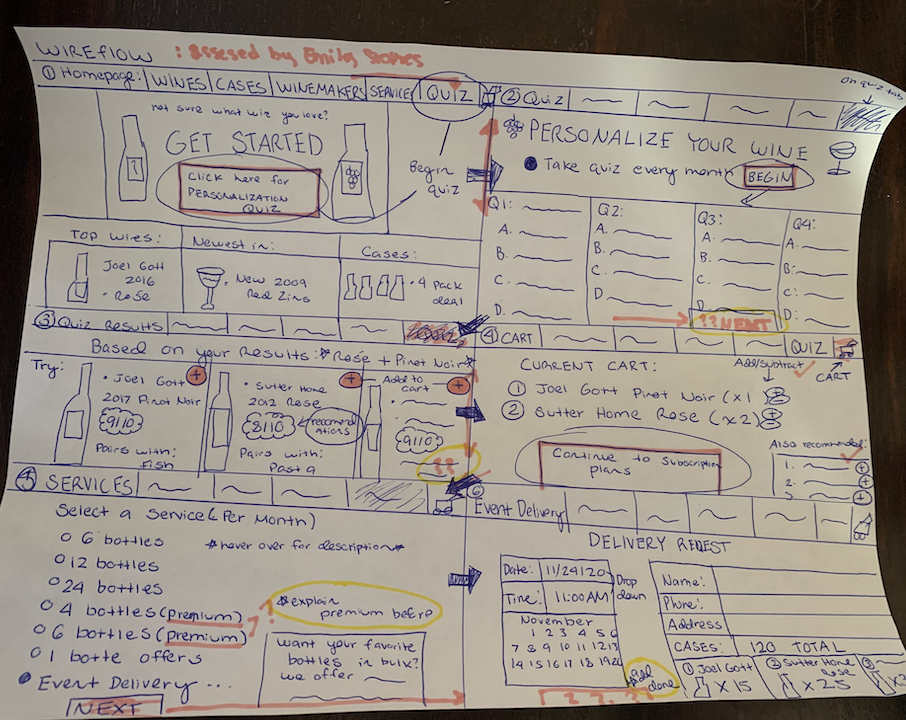 WIREFLOW : Assesed by Emily Stones
on quiz tab
① Homepage: WINES CASES WINEMAKERS SERVICES QUIZ
not sure what wiz you love?
GET STARTED
Click here for
PERSONALIZATION
QUIZ
Begin
quiz
TOP Wires:
Joel Gott
2016
• Rose
Newest in:
• New 2009
Red Zins
Cases:
• 4 pack
deal
② Quiz
PERSONALIZE YOUR WINE
Take quiz every month BEGIN
Q1:
A.
B.
C.
D.
Q2:
A.
B.
C.
D
Q3:
A.
B.
C.
D
Q4:
A.
B:
C:
D:
?? NEXT
③ Quiz Results
Quiz
Based on your Results: * Rose + Pinot Noir *
Try:
• Joel Gott
2017 Pinot Noir
9/10
Pairs with:
fish
+
• Sutter Home
2012 Rose
8/10
recomend
ations
Pairs with:
Pasta
+
Add to
cart
+
9/10
??
④ CART
QUIZ
CURRENT CART:
Add/subtract
CART
① Joel Gott Pinot Noir (x1)
② Sutter Home Rose (x2)
Continue to Subscription
plans
Also recommended:
1. +
2. +
3 +
④ SERVICES
Select a Service (Per Month)
*hover over for description*
o 6 bottles
o 12 bottles
o 24 bottles
o 4 bottles (premium)
o 6 bottles (premium)
o 1 botte offers
• Event Delivery ...
NEXT
?
*explain
premium before
want your favorite
bottles in bulk?
we offer
⑥
Event Delivery
DELIVERY REQEST
Date: 11/24/20
Time: 11:00AM
Drop
down
November
1 2 3 4 5 6
7 8 9 10 11 12 13
14 15 16 17 18 19 20
add
done
? ? ? ?
Name:
Phone:
Address
CASES: 120 TOTAL
① Joel Gott
x 15
② Sutter Home
Rose
x 25
③